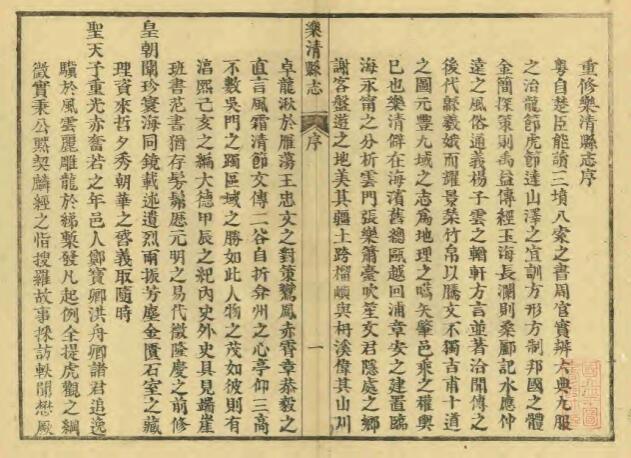 重修樂清縣志序
粵自楚臣能讀三墳八索之書周官實辨大典九服
之治龍節虎節達山澤之宜訓方形方制邦國之體
金簡探策則禹益傳經玉海長瀾則桑酈記水應仲
遠之風俗通義楊子雲之輶軒方言並著洽聞傳之
後代繇羲娥而耀景榮竹帛以騰文不獨古甫十道
之圖元豐九域之志為地理之嚆矢肇邑乘之權輿
已也樂清僻在海濱舊總甌越回浦章安之建置臨
海永甯之分析雲門張樂簫臺吹笙文君隱處之鄉
謝客盤遊之地美其疆土跨榴嶼與枏溪偉其山川
樂清縣志
序
一
卓龍湫於雁蕩王忠文之對策鸞鳳赤霄章恭毅之
直言風霜清節文傳二谷自折弇州之心亭仰三高
不數吳門之躅區域之勝如此人物之茂如彼則有
淊熙己亥之編大德甲辰之紀內史外史具見端崖
班書范書猶存髣髴歷元明之易代徵隆慶之前修
皇朝闡珍寰海同鏡載述遺烈爾振芳塵金匱石室之藏
理資來哲夕秀朝華之啓義取隨時
聖天子重光赤奮若之年邑人鄭寶卿洪舟卿諸君追逸
驥於風雲麗雕龍於綈槧發凡起例全提虎觀之綱
徵實秉公黙契麟經之恉搜羅故事採訪軼聞懋厥